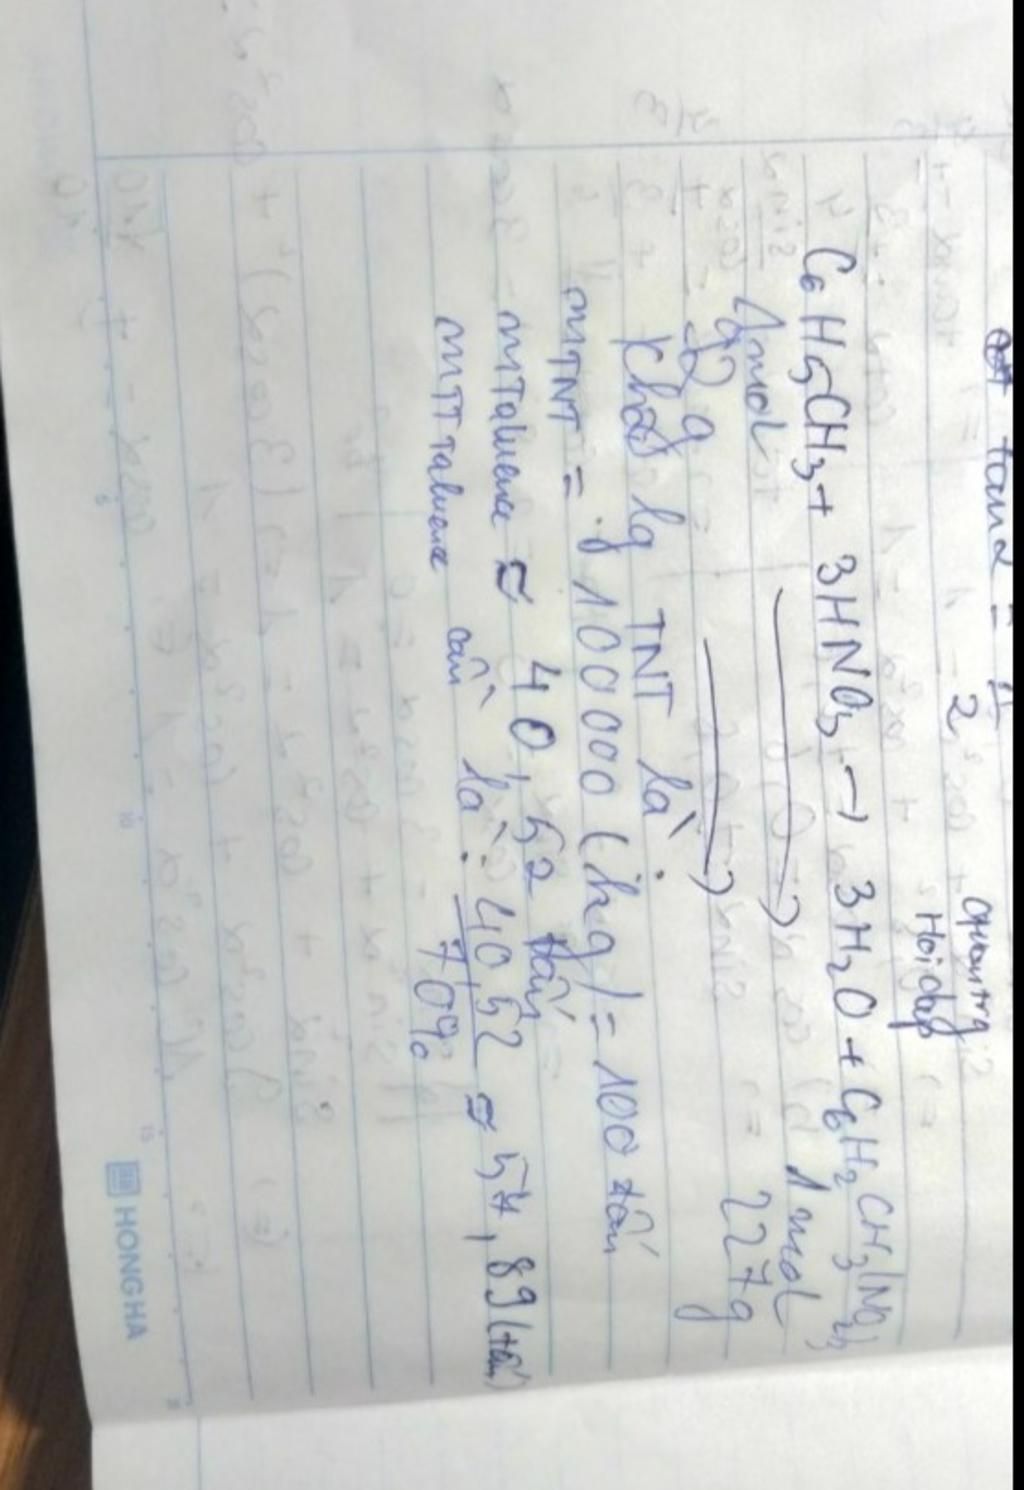 tanα =
2
quantrg
Hoidap
C6H5CH3 + 3HNO3 → 3H2O + C6H2CH3(NO2)3
1mol → 1mol
92g → 227g
lg TNT là:
mTNT = 100000 (kg) = 100 tấn
mTaluene ≈ 40,52 tấn
mTT Taluene cần là: 40,52 / 70% ≈ 57,89 (tấn)
HONG HA